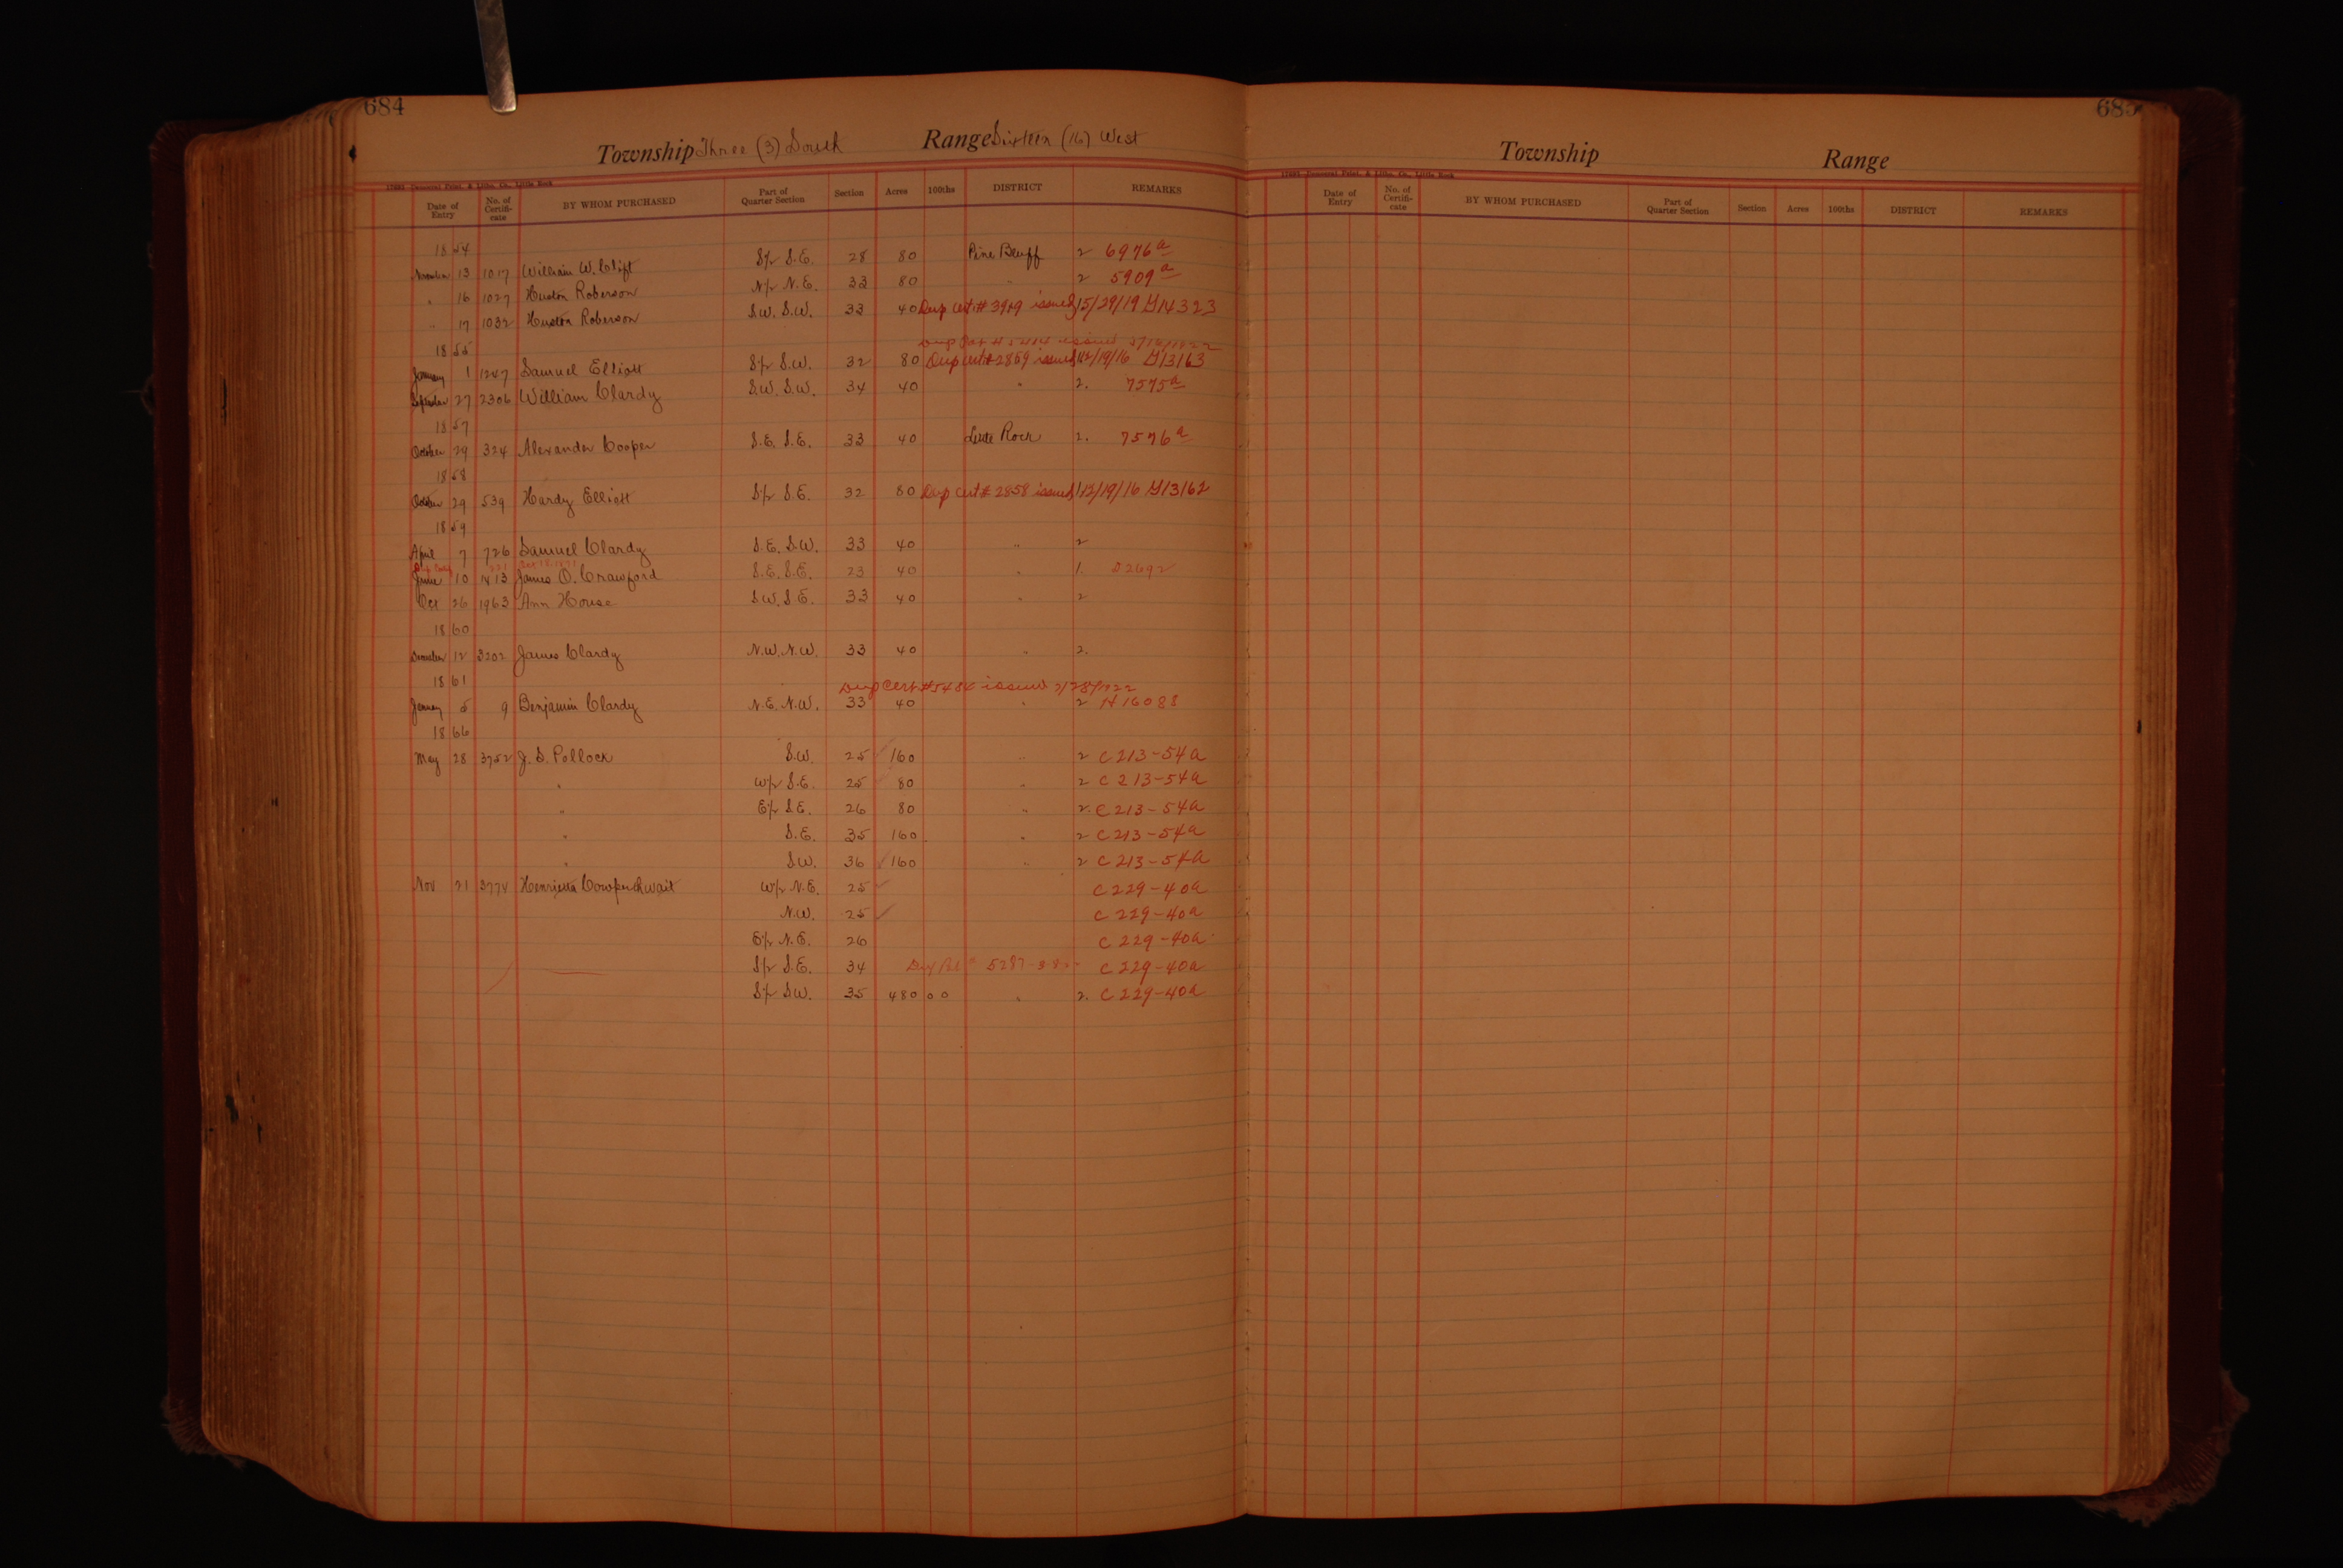 684
Township Three (3) South Range Sixteen (16) West
Date of Entry No. of Certificate BY WHOM PURCHASED Part of Quarter Section Section Acres 100ths DISTRICT REMARKS
1854
November 13 1017 William W. Clift S½ S.E. 28 80 Pine Bluff 2 6976a
" 16 1027 Huston Roberson N½ N.E. 33 80 " 2 5909a
" 17 1032 Huston Roberson S.W. S.W. 33 40 Dup Cert # 3919 issued 5/29/19 G14323
1855
January 1 1247 Samuel Elliott S½ S.W. 32 80 Dup Cert # 2859 issued 12/19/16 G13163
September 27 2306 William Clardy S.W. S.W. 34 40 " 2. 7575a
1857
October 24 324 Alexander Cooper S.E. S.E. 33 40 Little Rock 2. 7576a
1858
October 29 539 Hardy Elliott S½ S.E. 32 80 Dup Cert # 2858 issued 12/19/16 G13162
1859
April 7 726 Samuel Clardy S.E. S.W. 33 40 " 2
June 10 1413 James O. Crawford S.E. S.E. 23 40 " 1. D2692
Oct 26 1963 Ann House S.W. S.E. 33 40 " 2
1860
December 12 3202 James Clardy N.W. N.W. 33 40 " 2.
1861
Dup Cert #5484 issued 2/28/1922
January 5 9 Benjamin Clardy N.E. N.W. 33 40 " 2 H16088
1866
May 28 3752 J. S. Pollock S.W. 25 160 " 2 C213-54a
" W½ S.E. 25 80 " 2 C213-54a
" E½ S.E. 26 80 " 2. C213-54a
" S.E. 35 160 " 2 C213-54a
" S.W. 36 160 " 2 C213-54a
Nov 21 3774 Henrietta Cowperthwait W½ N.E. 25 C229-40a
N.W. 25 C229-40a
E½ N.E. 26 C229-40a
S½ S.E. 34 C229-40a
S½ S.W. 35 480 00 " 2. C229-40a
685
Township Range
Date of Entry No. of Certificate BY WHOM PURCHASED Part of Quarter Section Section Acres 100ths DISTRICT REMARKS